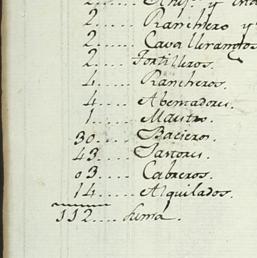 2..... y
2..... Ranchero y
2.....
2..... Fortilleros.
4..... Rancheros.
4..... Abentadores.
1..... Maestro
30..... Bacieros.
43.... Pastores.
03.... Cabreros.
14.... Alquilados.
112.... Suma.